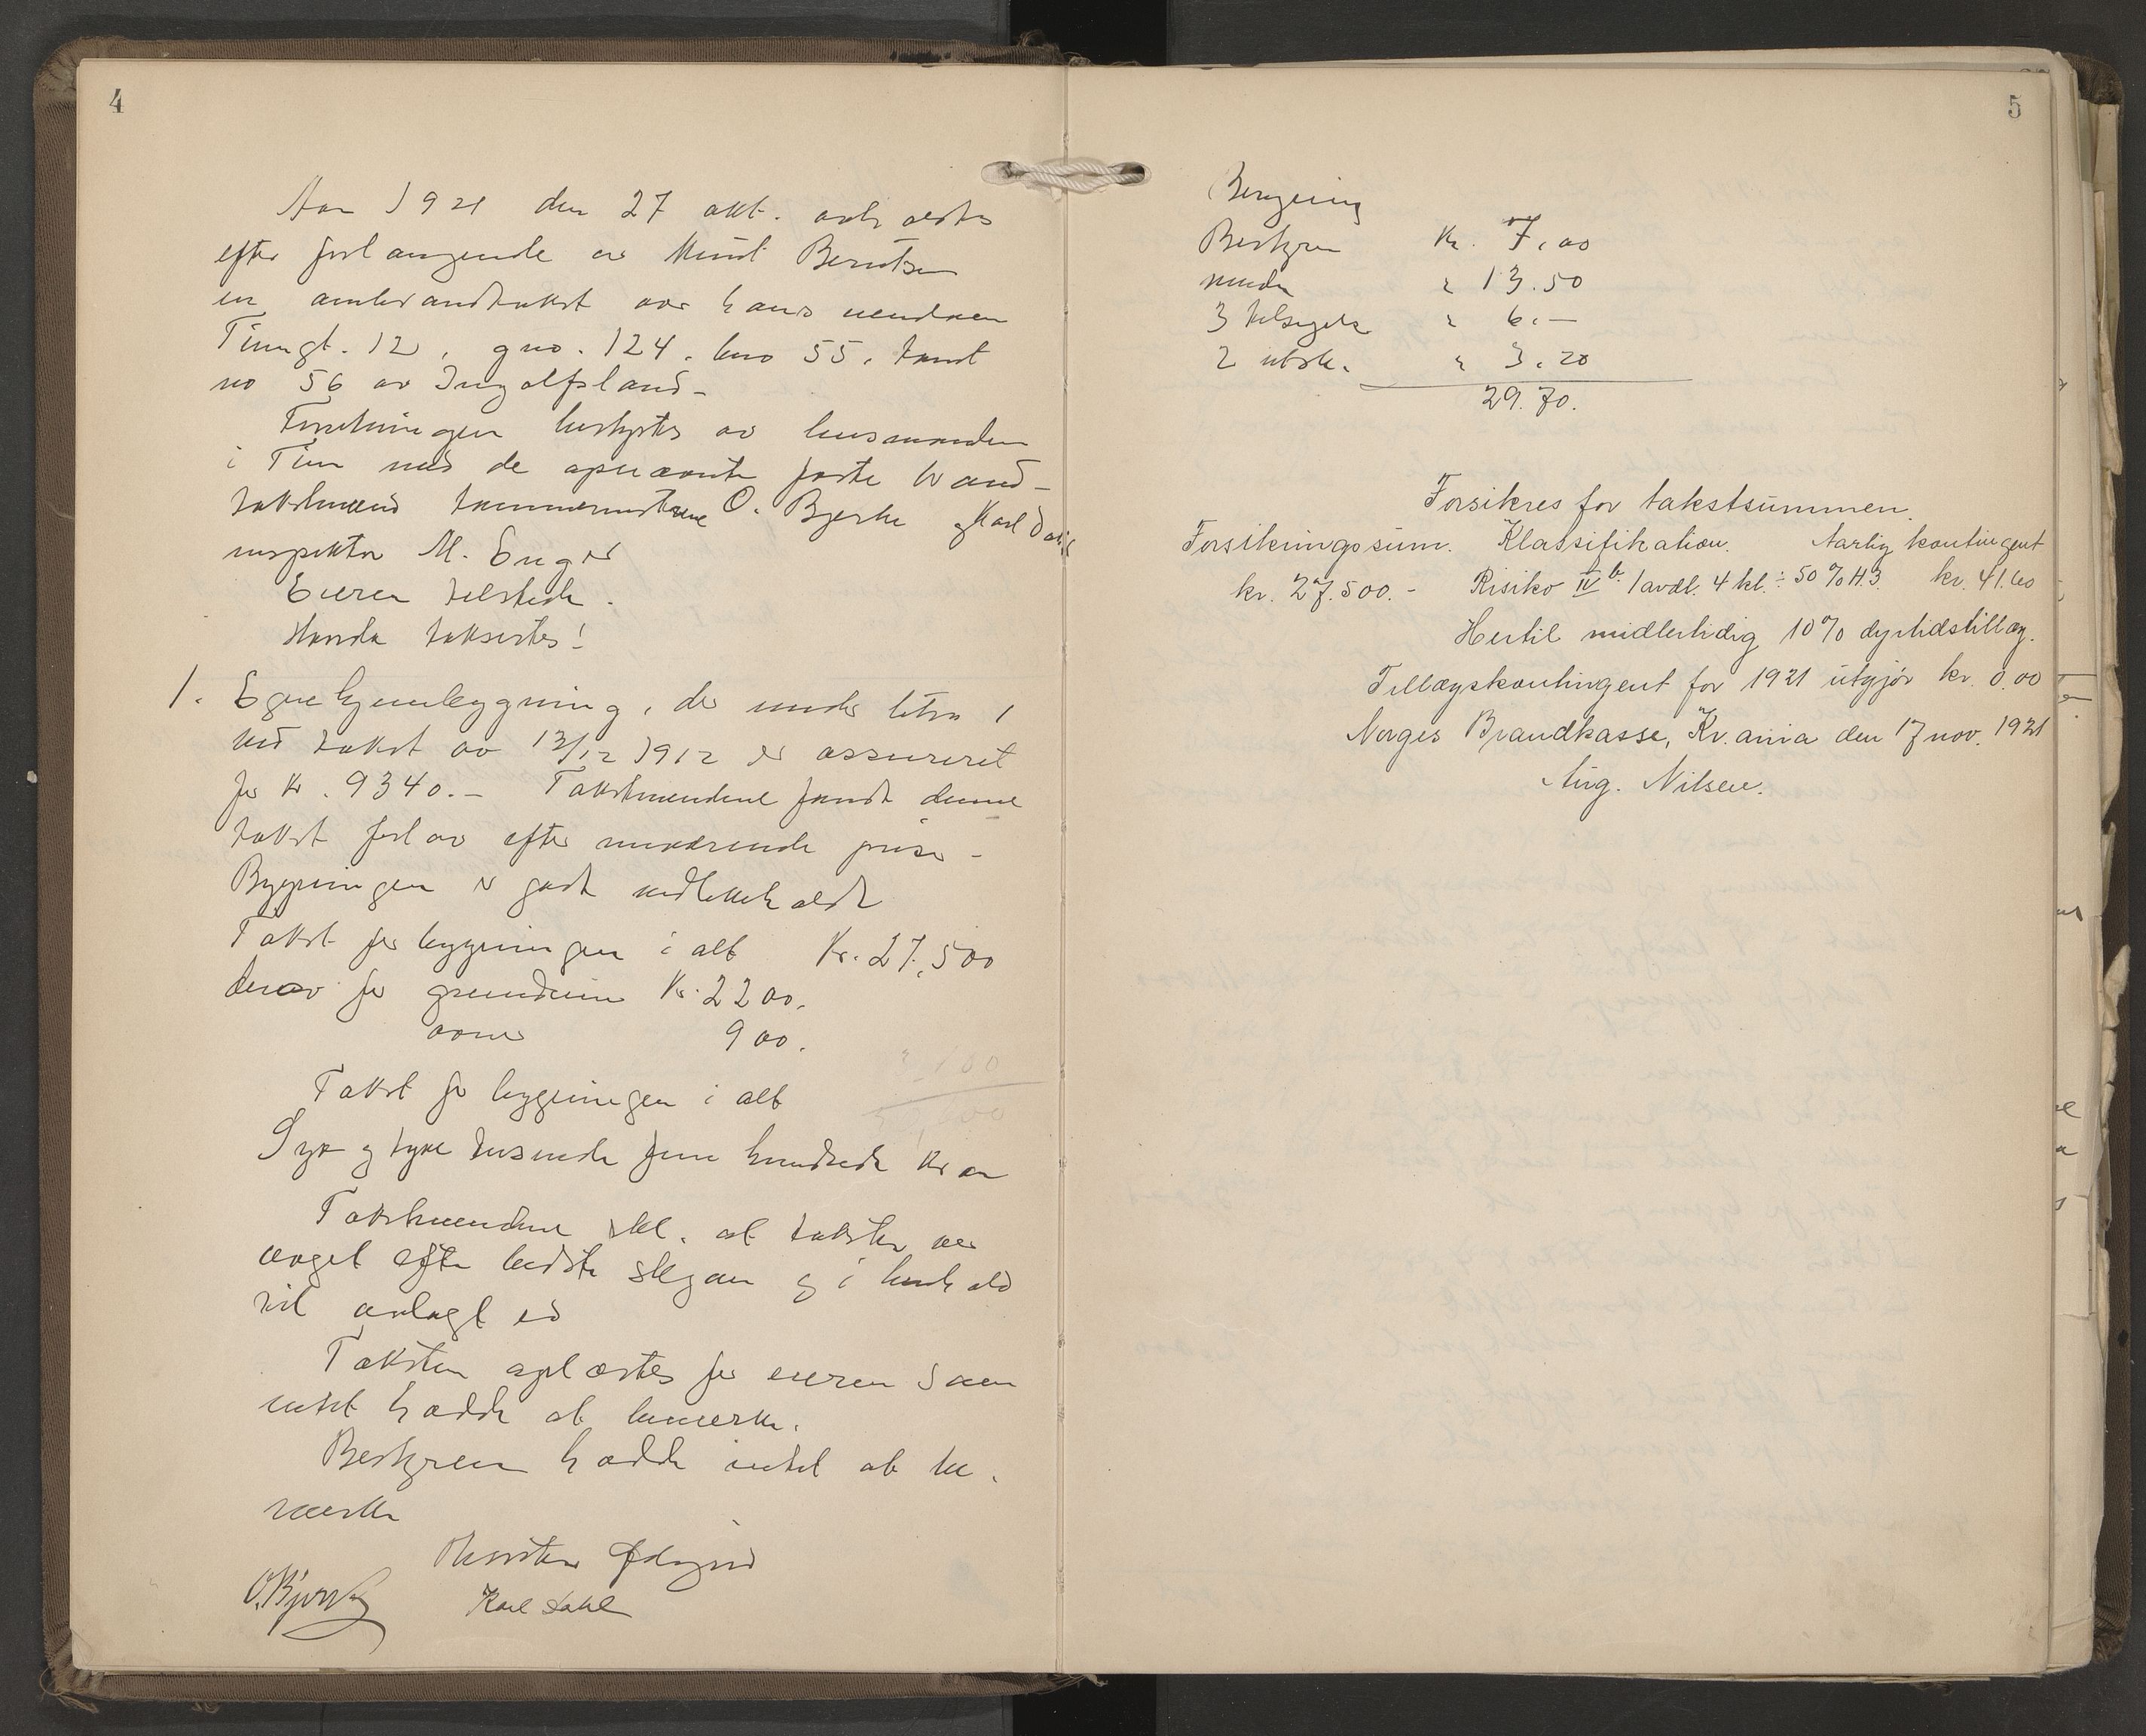 4
Aar 1921 den 27 okt. avholdtes
efter forlangende av Knut Berntsen
en ombrandtakst over hans eiendom
Tinngt. 12, gno. 124. bno 55. tomt
no 56 av Ingolfsland.
Forretningen bestyrtes av lensmanden
i Tinn med de opnævnte faste brand-
takstmænd tømmermestrene O. Bjerke og Karl Dahl
inspektør M. Enger
Eieren tilstede.
Havde taksertes!
1. Egnehjemsbygning, der under litra 1
ved takst av 13/12 1912 er assureret
for kr. 9340.- Takstmændene fandt denne
takst for lav efter nuværende priser -
Bygningen er godt vedlikeholdt
Takst for bygningen i alt Kr. 27,500
derav for grundmur Kr. 2200.
ovner 900.
Takst for bygningen i alt
Syv og tyve tusende fem hundrede kroner
Takstmændene erkl. at taksten var
avgit efter bedste skjøn og i henhold
til avlagt ed
Taksten oplæstes for eieren som
intet hadde at bemerke.
Bestyreren hadde intet at be-
merke
O. Bjerke Karl Dahl
5
Beregning
Bestyren Kr. 7,00
mændn " 13.50
3 tilsigelse " 6.-
2 utskr. " 3.20
29.70.
Forsikres for takstsummen.
Forsikringssum. Klassifikation. Aarlig kontingent
kr. 27.500.- Risiko IV b. 1 avdl. 4 kl. ÷ 50% H.3. kr. 41.60
Hertil midlertidig 10% dyrtidstillæg.
Tillægskontingent for 1921 utgjør kr. 0.00
Norges Brandkasse, Kr.ania den 17 nov. 1921
Aug. Nilsen.